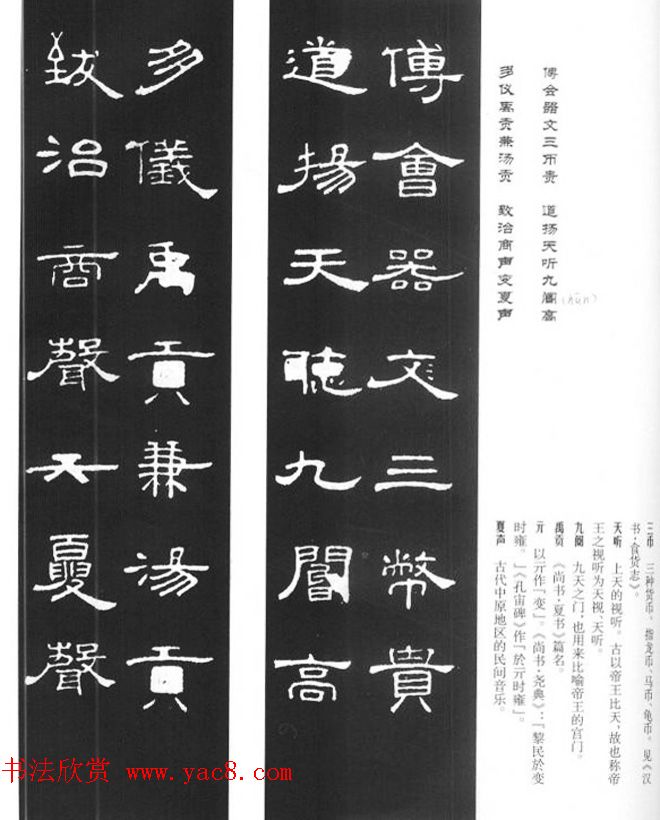 傅会器文三币贵 道扬天听九阍高
多仪禹贡兼汤贡 致治商声变夏声
三币 三种货币。指龙币、马币、龟币。见《汉
书·食货志》。
天听 上天的视听。古以帝王比天，故也称帝
王之视听为天视、天听。
九阍 九天之门，也用来比喻帝王的宫门。
禹贡 《尚书·夏书》篇名。
以亓作「变」。《尚书·尧典》：「黎民於变
时雍。」《孔宙碑》作「於亓时雍」。
夏声 古代中原地区的民间音乐。
傅會器文三幣貴
道揚天聽九閽高
多儀禹貢兼湯貢
致治商聲夏聲
书法欣赏 www.yac8.com